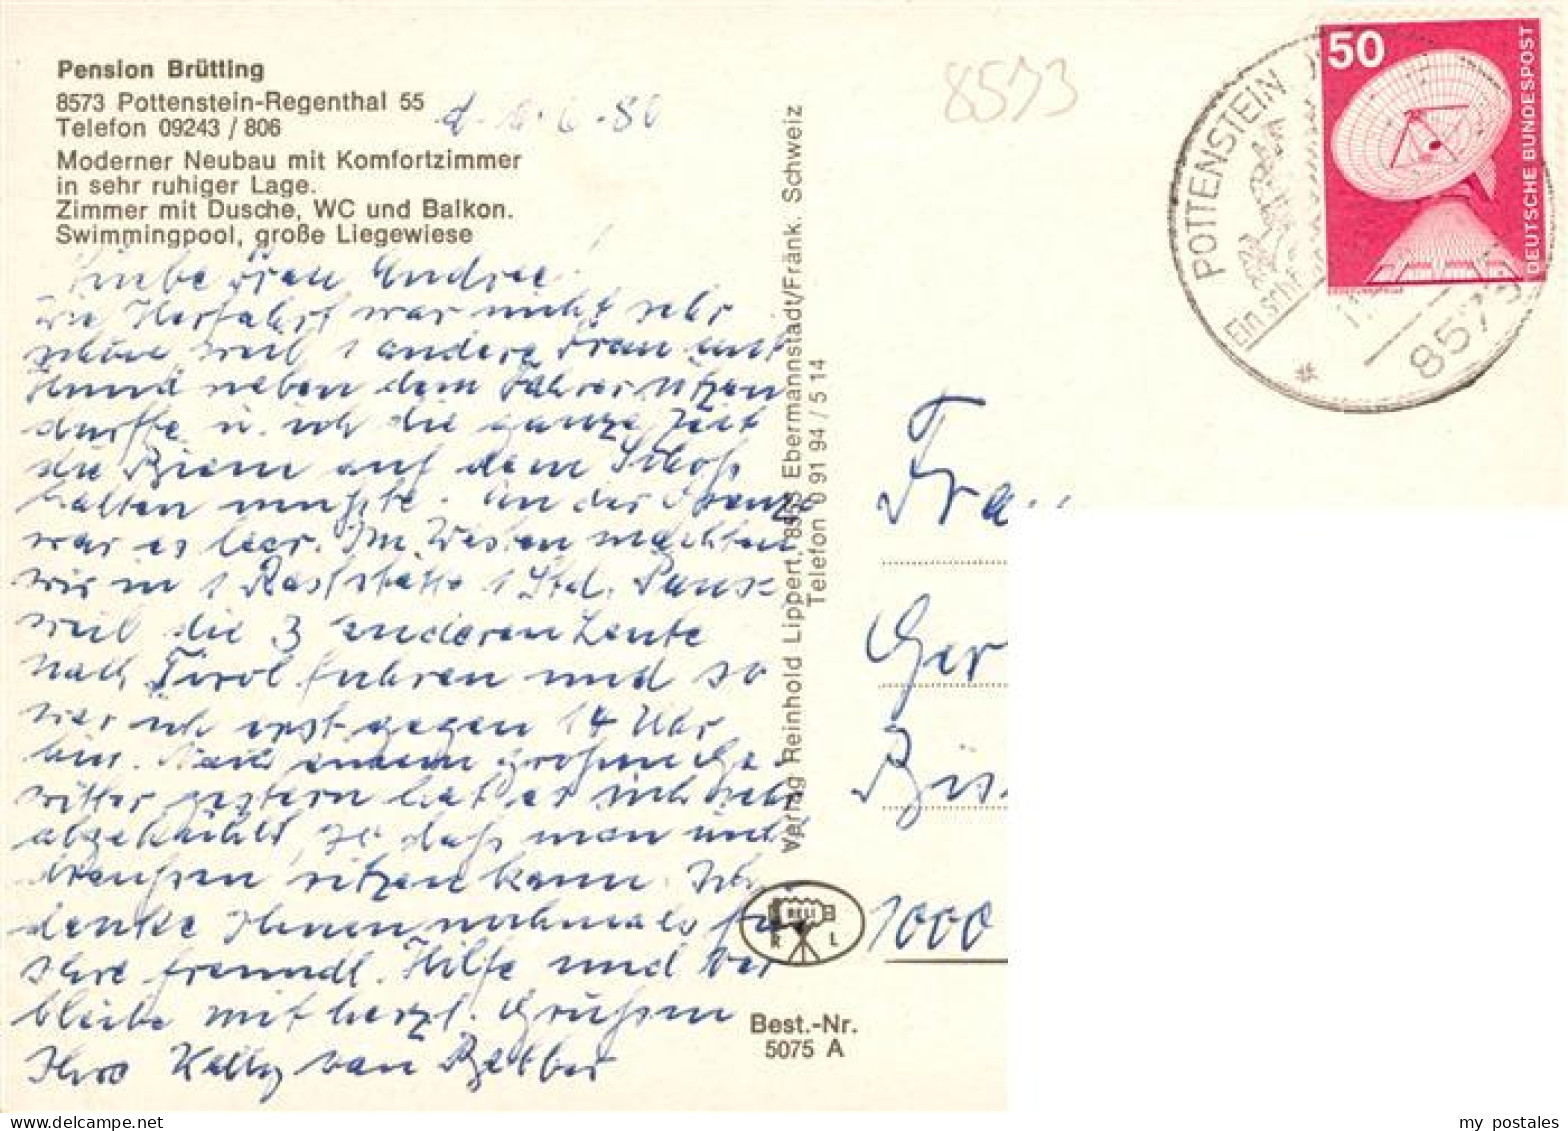 Pension Brütting
8573 Pottenstein-Regenthal 55
Telefon 09243 / 806
Moderner Neubau mit Komfortzimmer
in sehr ruhiger Lage.
Zimmer mit Dusche, WC und Balkon.
Swimmingpool, große Liegewiese
d. 6.80
Liebe Frau Andree!
die Herfahrt war nicht sehr
schön weil 1 andere Frau mit
Hund neben dem Fahrer sitzen
durfte u. ich die ganze Zeit
die auf dem Schoß
halten mußte. An der Grenze
war es leer. Im Westen machten
wir in 1 Raststätte 1 Std. Paus-
weil die 3 anderen Leute
nach Tirol fuhren und so
war ich erst gegen 14 Uhr
hier. Nach einem großen Ge-
witter gestern hat es sich sehr
abgekühlt, so daß man nicht
draußen sitzen kann. Ich
danke Ihnen nochmals für
Ihre freundl. Hilfe und ver
bleibe mit herzl. Grüßen
Ihre Kelly van
Verlag Reinhold Lippert, 8553 Ebermannstadt/Fränk. Schweiz
Telefon 0 91 94 / 5 14
RELI
R L
Best.-Nr.
5075 A
8573
POTTENSTEIN
8573
50
DEUTSCHE BUNDESPOST
Frau
Ger
Bis
1000
my postales